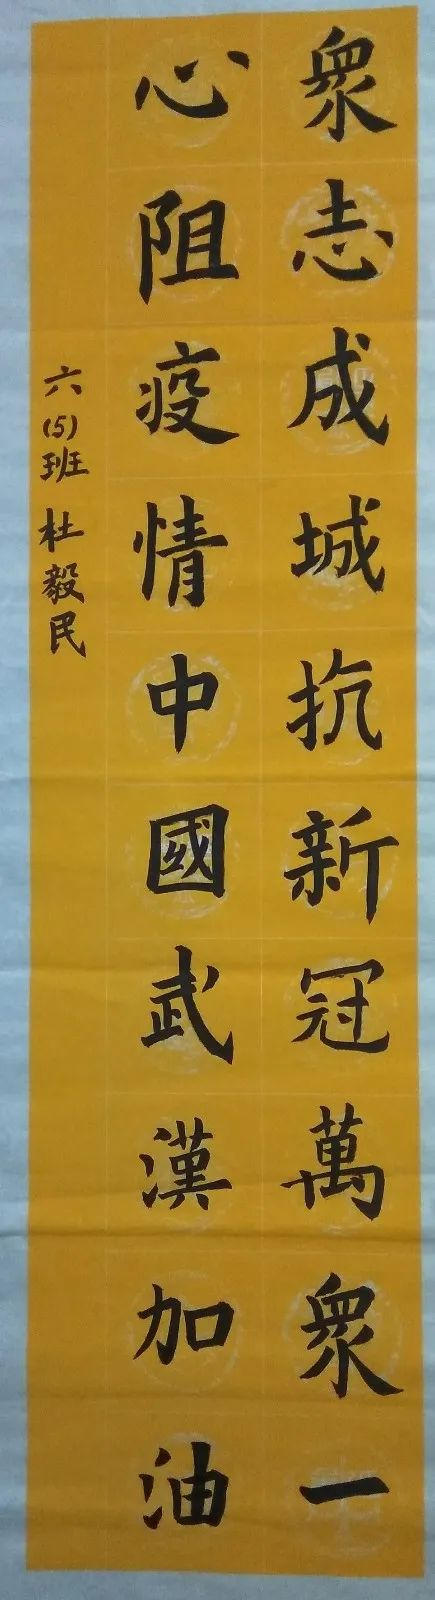 衆志成城抗新冠萬衆一
心阻疫情中國武漢加油
六(5)班 杜毅民